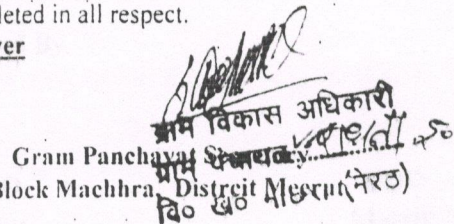 leted in all respect.
ver
ग्राम विकास अधिकारी
Gram Panchayat
ग्राम पंचायत
Block Machhra, Distrcit Meerut
वि० ख० माछरा (मेरठ)